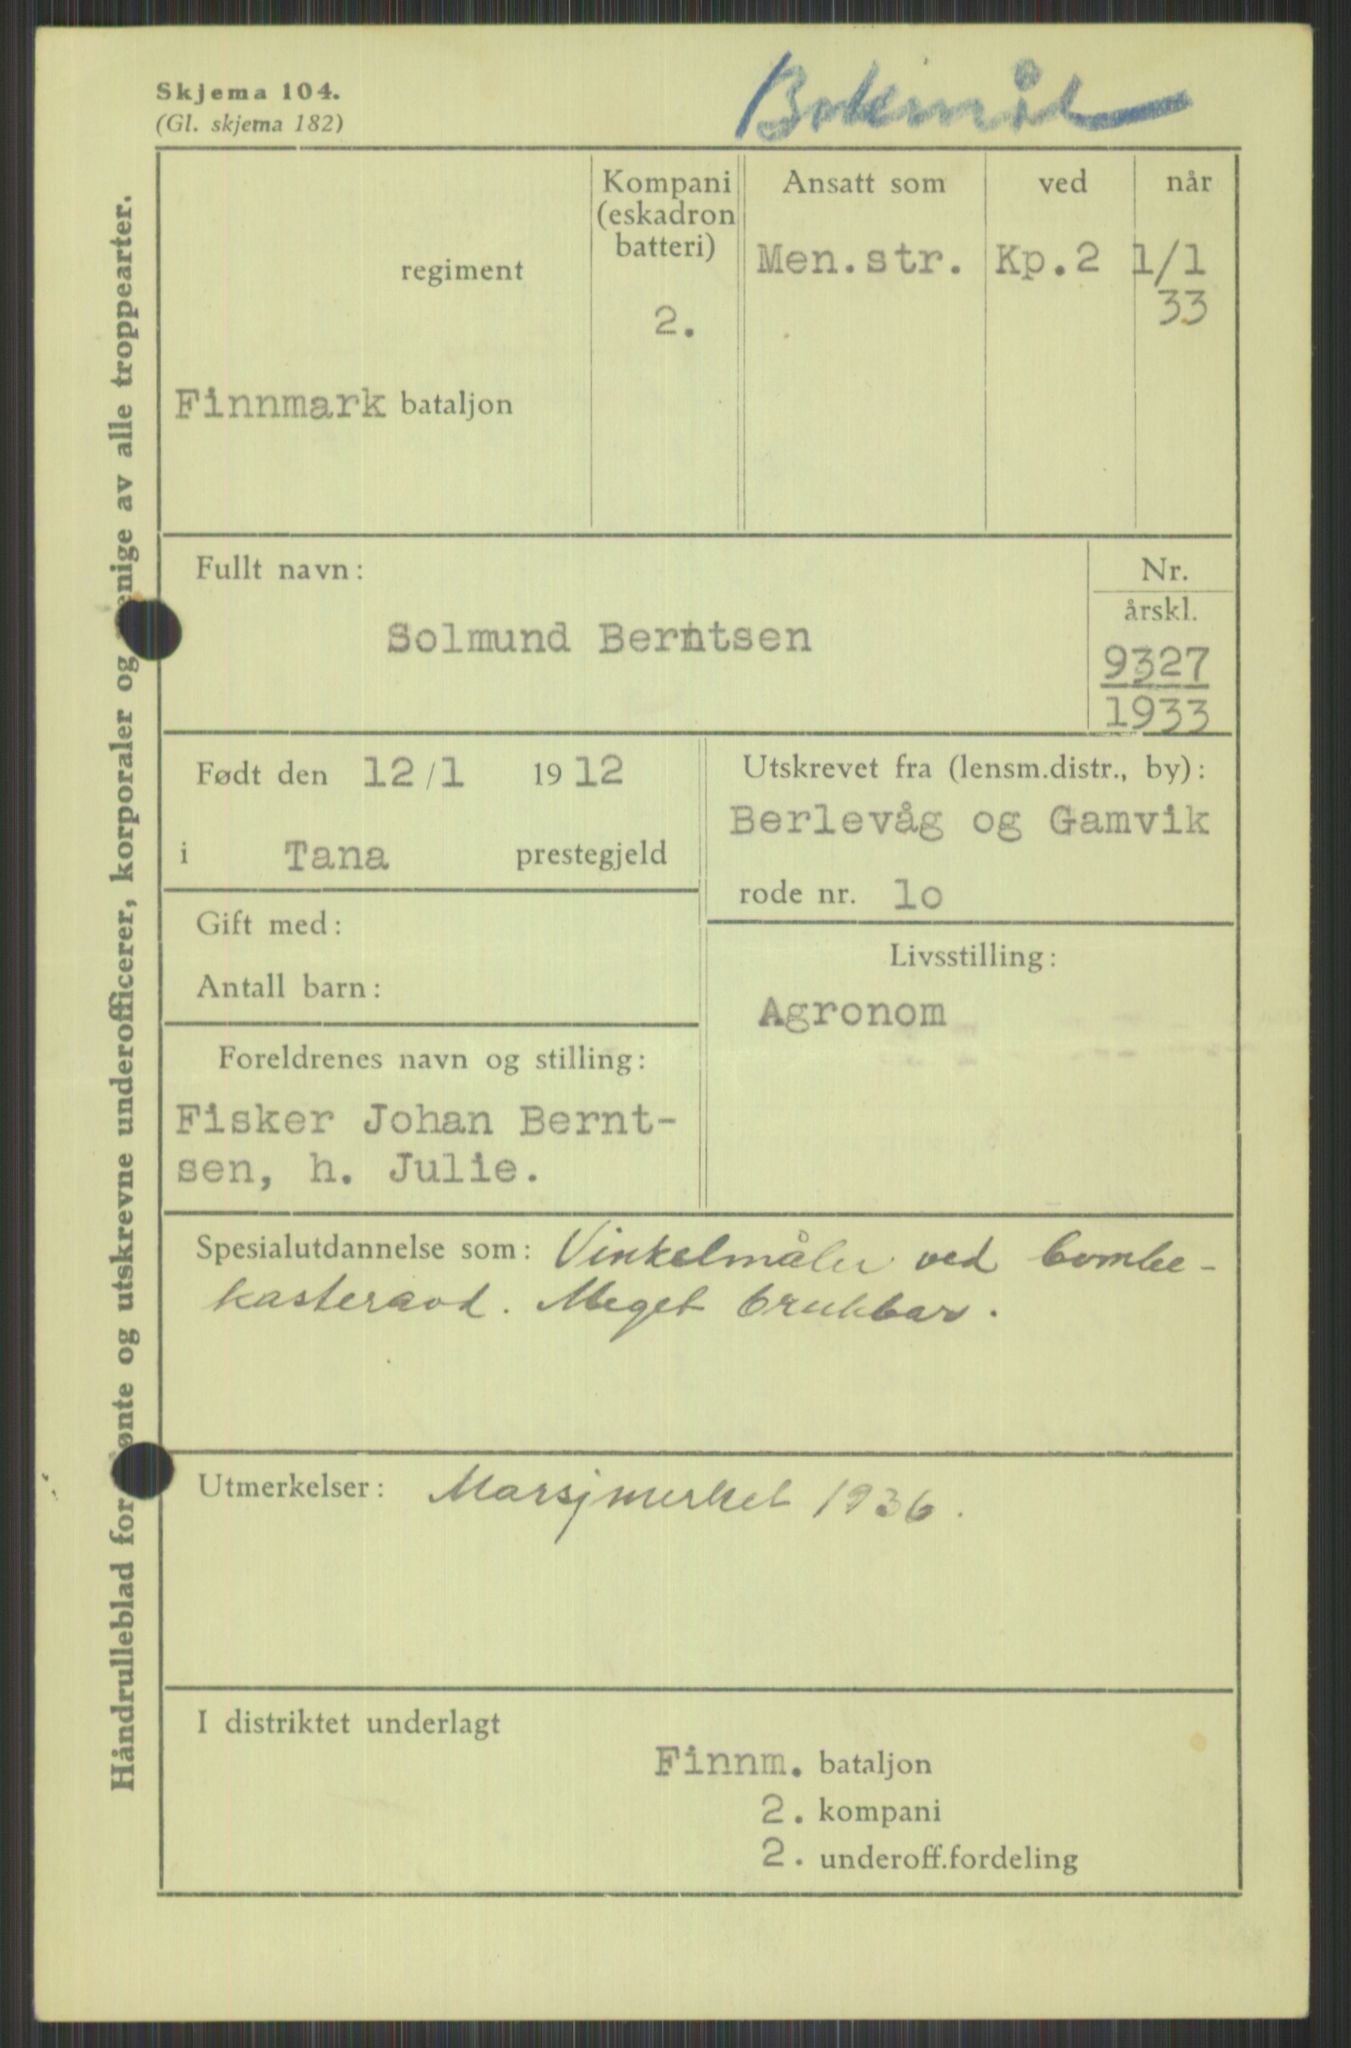 Skjema 104.
(Gl. skjema 182)
Bokmål
Håndrulleblad for lønte og utskrevne underofficerer, korporaler og menige av alle troppearter.
regiment
Finnmark bataljon
Kompani
(eskadron
batteri)
2.
Ansatt som
Men.str.
ved
Kp.2
når
1/1
33
Fullt navn:
Solmund Berntsen
Nr.
årskl.
9327
1933
Født den 12/1 1912
i Tana prestegjeld
Utskrevet fra (lensm.distr., by):
Berlevåg og Gamvik
rode nr. lo
Gift med:
Antall barn:
Livsstilling:
Agronom
Foreldrenes navn og stilling:
Fisker Johan Bernt-
sen, h. Julie.
Spesialutdannelse som: Vinkelmåler ved bombe-
kasteravd. Meget brukbar.
Utmerkelser: Marsjmerket 1936.
I distriktet underlagt
Finnm. bataljon
2. kompani
2. underoff.fordeling